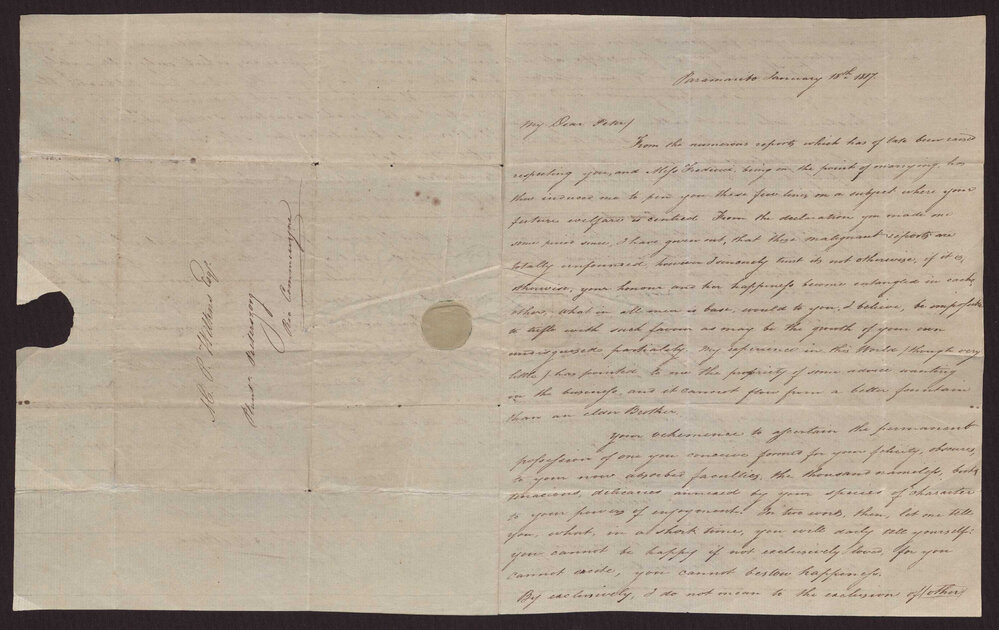 Paramaribo January 18th 1817.
My Dear Peter/
From the numerous reports which has of late been raised
respecting you, and Miss Frederica, being on the point of marrying, has
thus induced me to pen you these few lines on a subject where your
future welfare is centred. From the declaration you made me
some since, I have given out, that these malignant reports are
totally unfounded, however I sincerely trust its not otherwise, if it is,
otherwise, your honour and her happiness become entangled in each
other, what in all men is base, would to you, I believe, be impossible
to trifle with such favour as may be the growth of your own
undisguised partiality. My experience in this World (though very
little) has pointed to me the propriety of some advice wanting
on the business, and it cannot flow from a better fountain
than an elder Brother.
Your vehemence to ascertain the permanent
possession of one you conceive formed for your felicity, obscures,
to your now absorbed faculties, the thousand nameless, but
tenacious, delicacies annexed by your species of character
to your powers of enjoyment. In two words, then, let me tell
you, what, in a short time, you will daily tell yourself:
you cannot be happy if not exclusively loved, for you
cannot excite, you cannot bestow happiness.
By exclusively, I do not mean to the exclusion of other
A. C. P. Milleas Esqr.
Plante
Via Commewyne